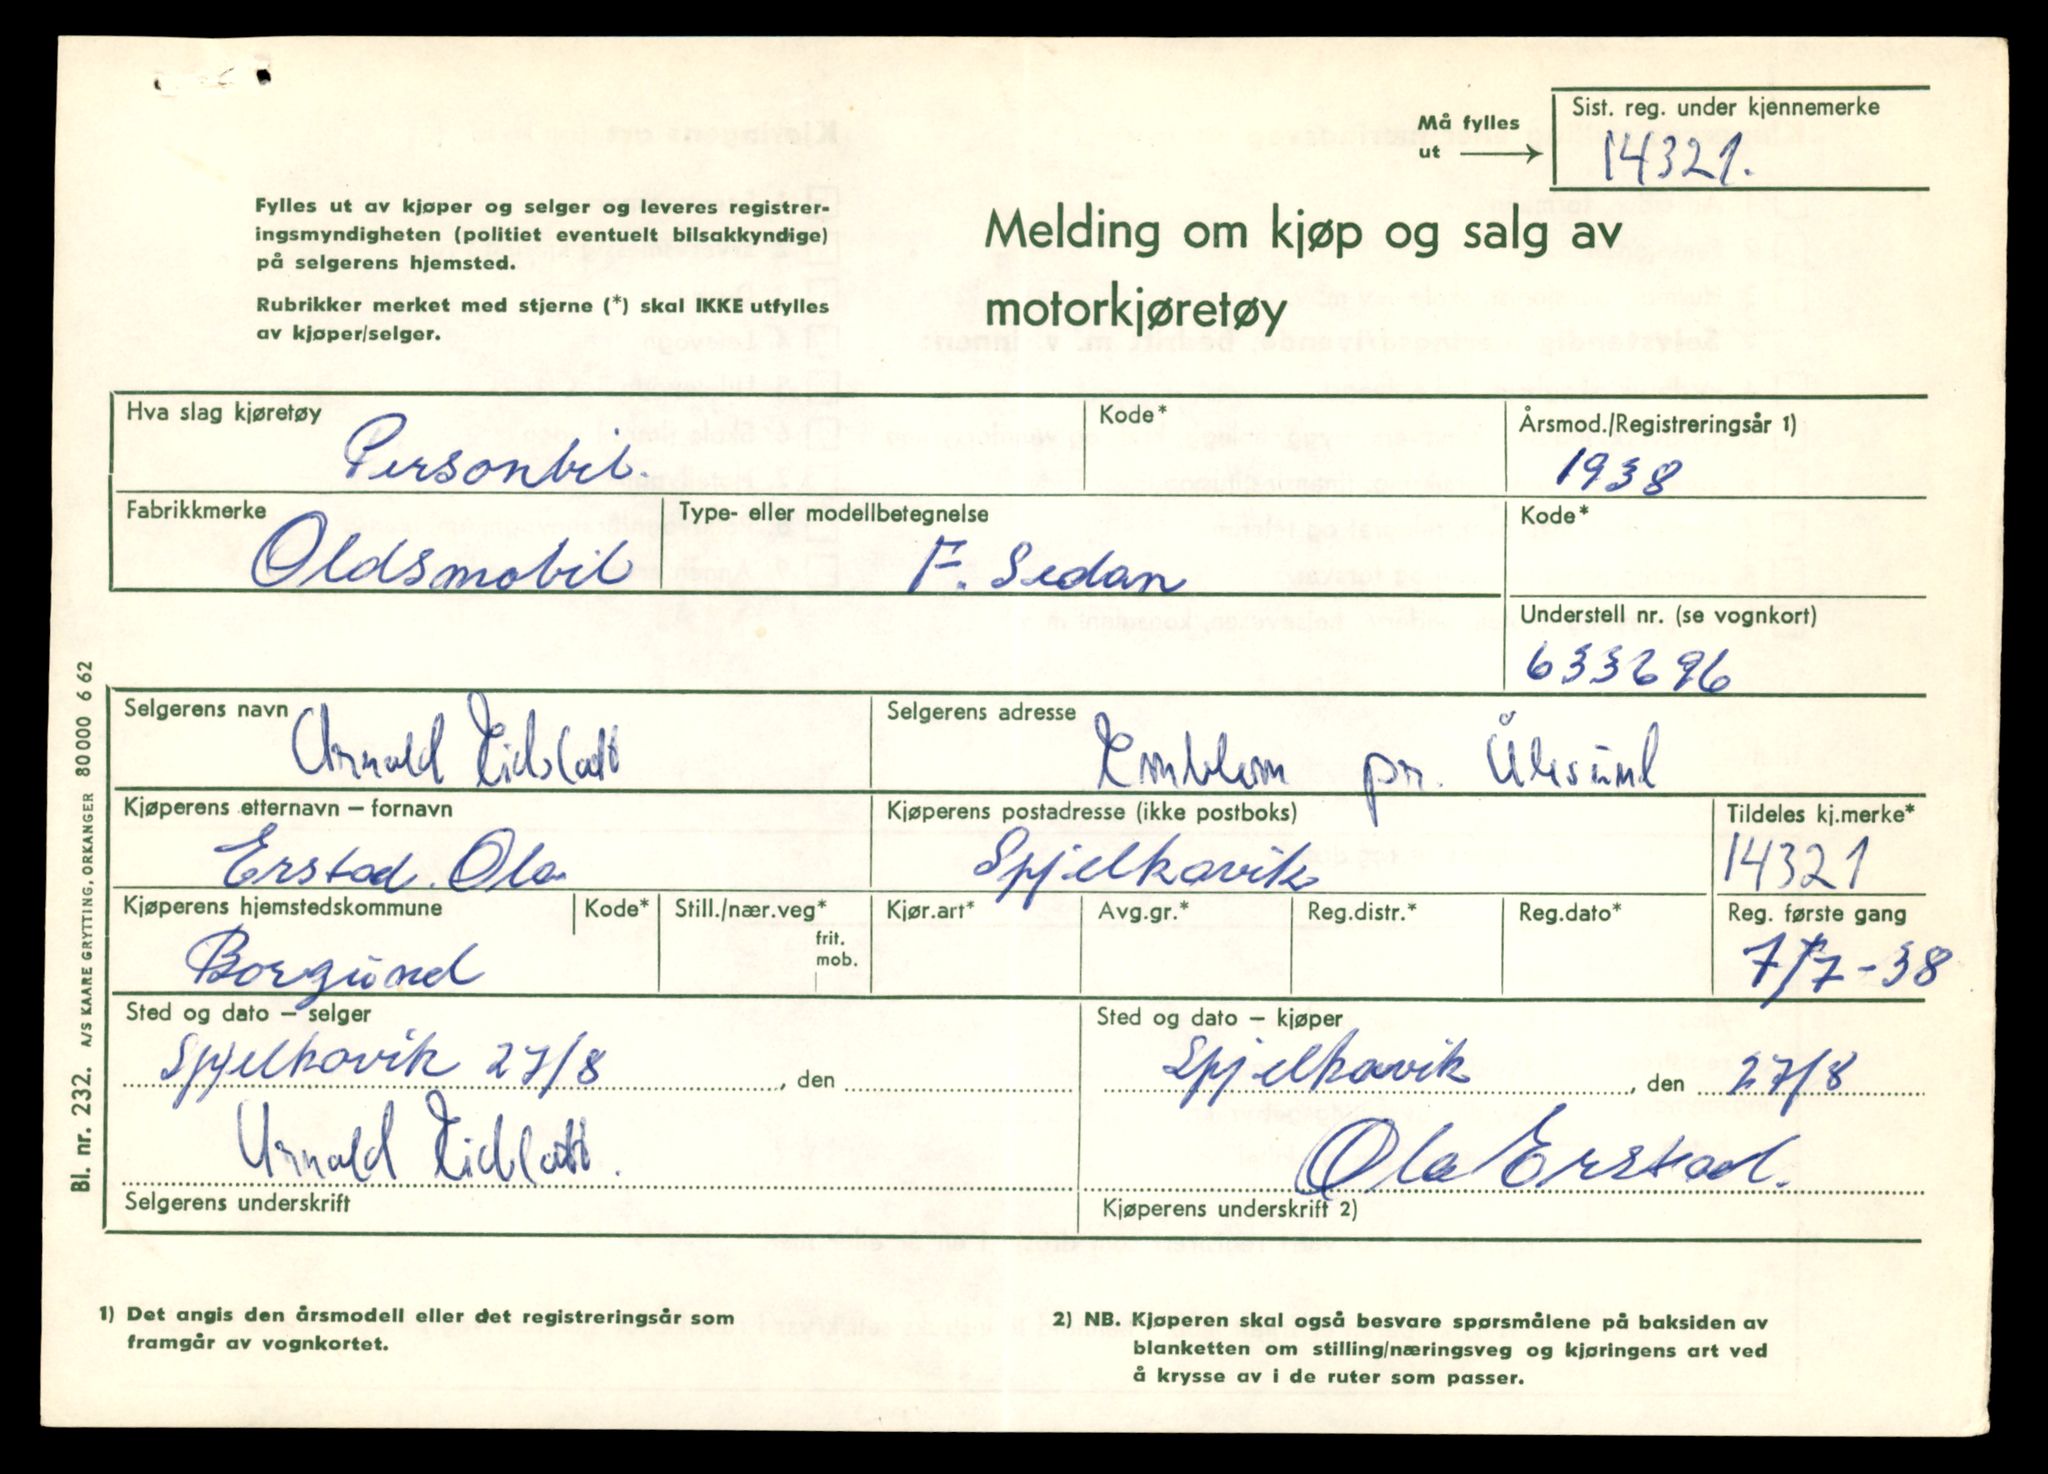 Må fylles
ut
Sist. reg. under kjennemerke
14321.
Fylles ut av kjøper og selger og leveres registrer-
ingsmyndigheten (politiet eventuelt bilsakkyndige)
på selgerens hjemsted.
Rubrikker merket med stjerne (*) skal IKKE utfylles
av kjøper/selger.
Melding om kjøp og salg av
motorkjøretøy
Hva slag kjøretøy
Personbil.
Kode*
Årsmod./Registreringsår 1)
1938
Fabrikkmerke
Oldsmobil
Type- eller modellbetegnelse
F. Sedan
Kode*
Understell nr. (se vognkort)
633696
Selgerens navn
Arnald
Selgerens adresse
Emblem pr. Ålesund
Kjøperens etternavn – fornavn
Erstad. Ola
Kjøperens postadresse (ikke postboks)
Spjelkavik
Tildeles kj.merke*
14321
Kjøperens hjemstedskommune
Borgund
Kode*
Still./nær.veg*
frit.
mob.
Kjør.art*
Avg.gr.*
Reg.distr.*
Reg.dato*
Reg. første gang
7/7-38
Sted og dato – selger
Spjelkavik 27/8 , den
Sted og dato – kjøper
Spjelkavik , den 27/8
Arnald
Selgerens underskrift
Ola Erstad.
Kjøperens underskrift 2)
1) Det angis den årsmodell eller det registreringsår som
framgår av vognkortet.
2) NB. Kjøperen skal også besvare spørsmålene på baksiden av
blanketten om stilling/næringsveg og kjøringens art ved
å krysse av i de ruter som passer.
Bl. nr. 232. A/S KAARE GRYTTING, ORKANGER 80 000 6 62